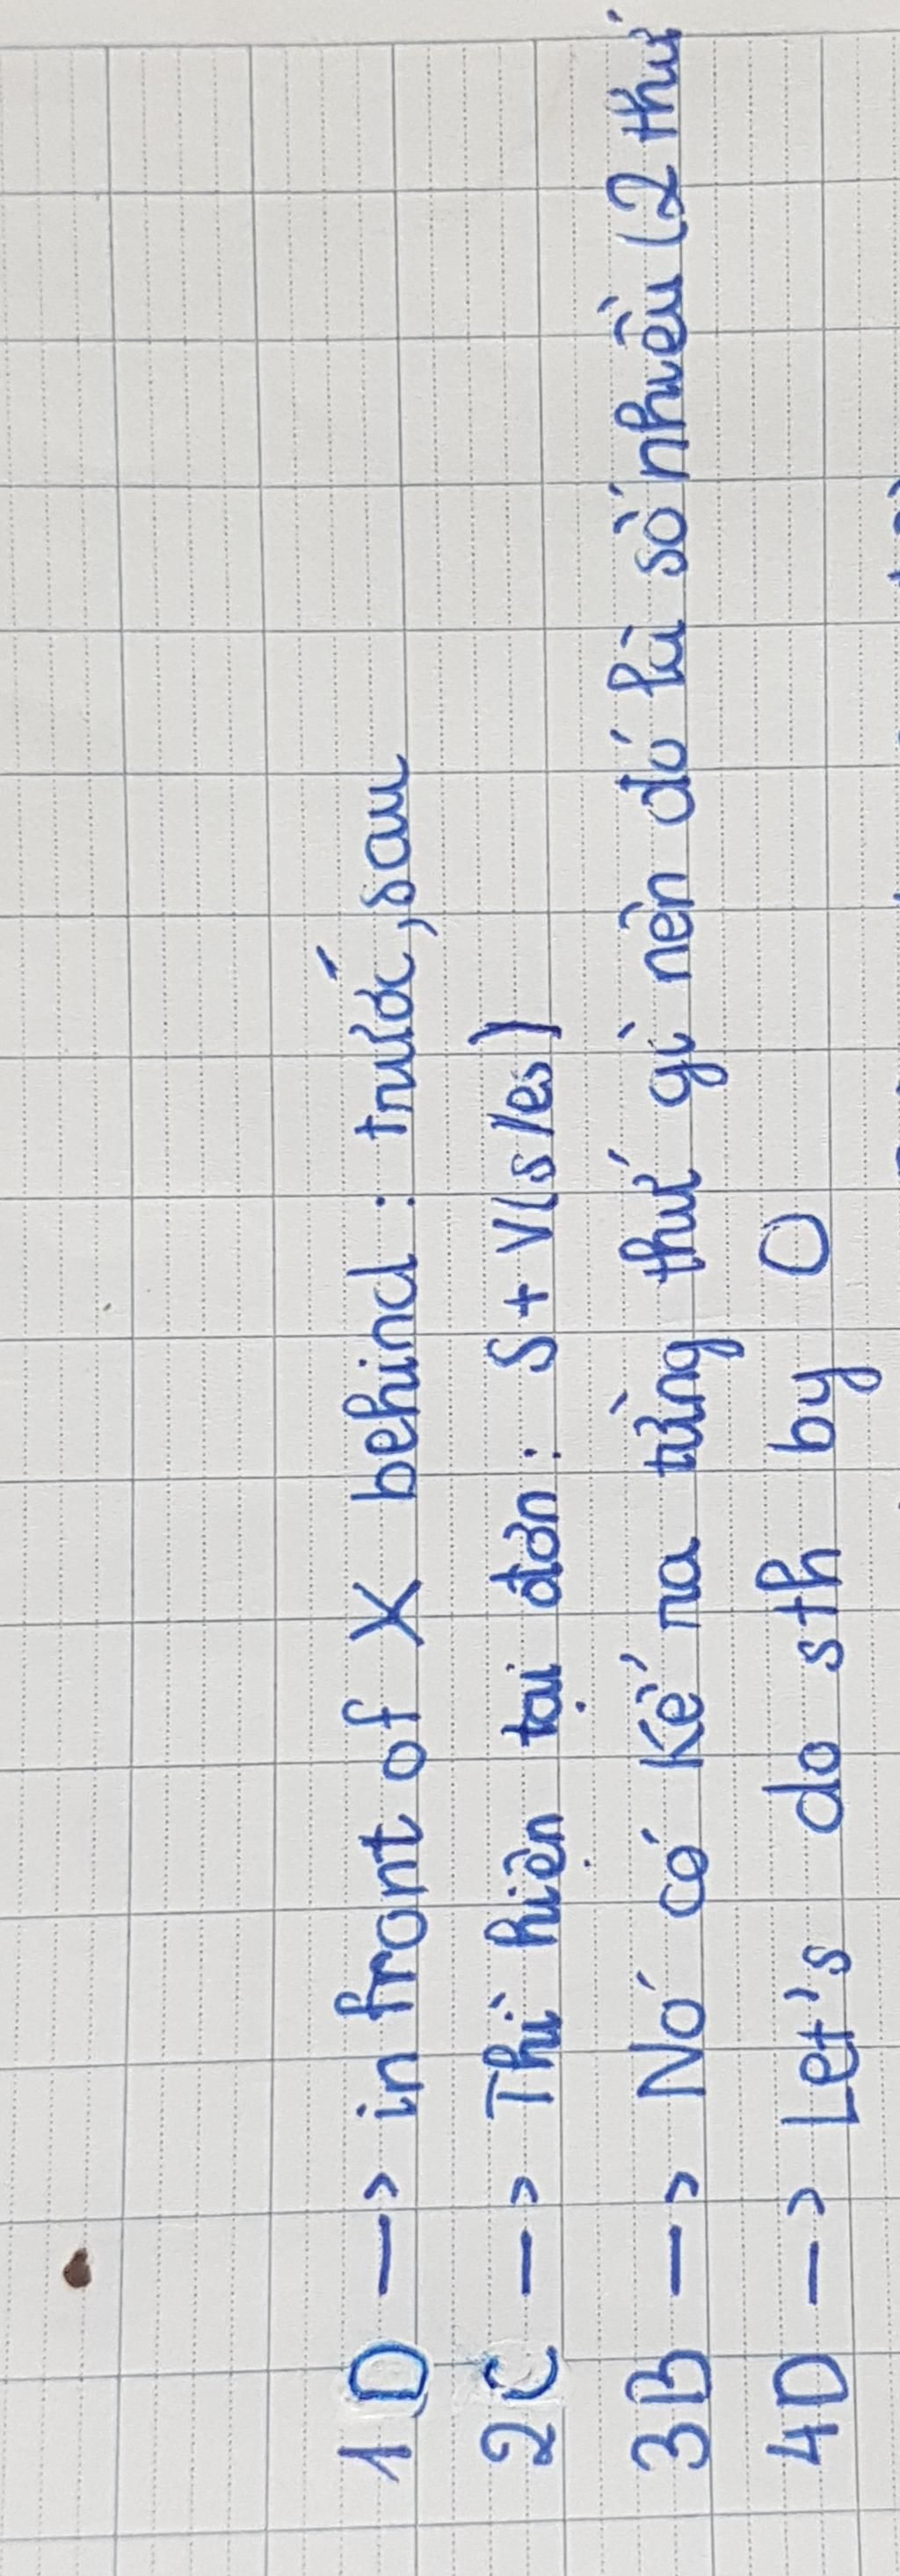 1D –> in front of X behind : trước, sau
2C –> Thì hiện tại đơn : S + V(s/es)
3B –> Nó có kể ra từng thứ gì nên đó là số nhiều (2 thứ
4D –> Let's do sth by O